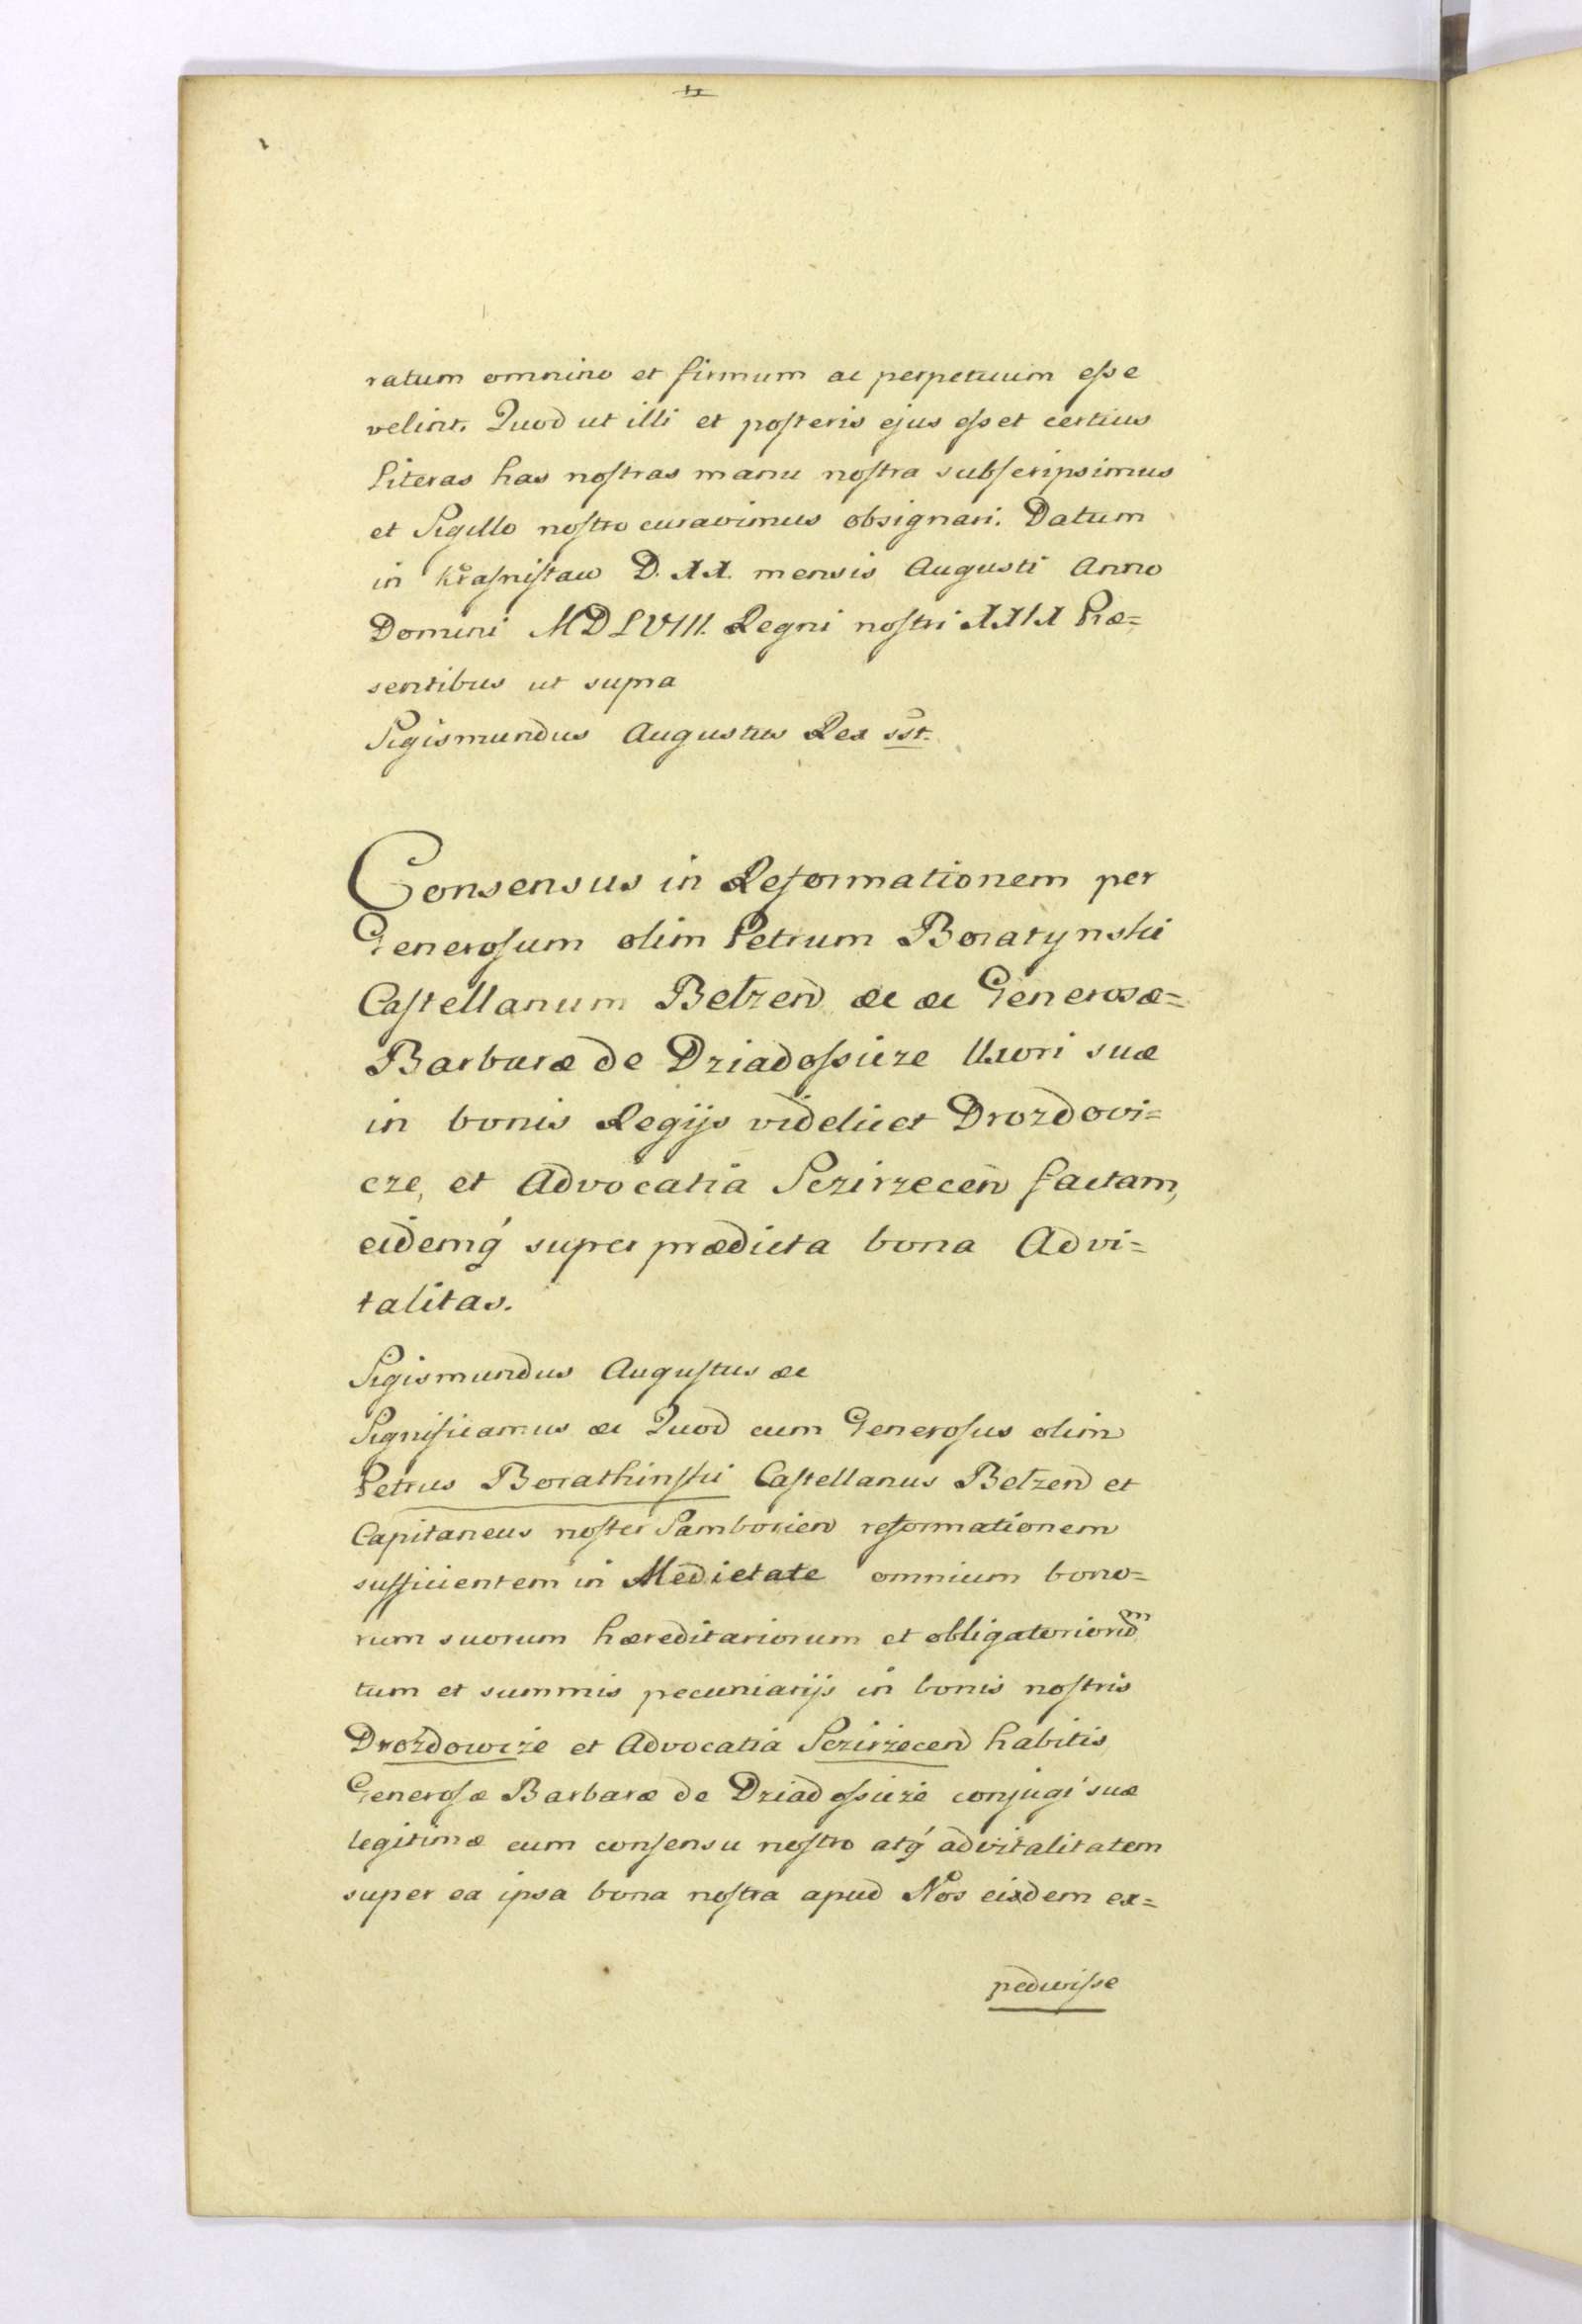 ratum omnino et firmum ac perpetuum eſse
velint. Quod ut illi et poſteris ejus eſset certius
literas has noſtras manu noſtra subſcripsimus
et Sigillo noſtro curavimus obsignari. Datum
in Kraſniſtaw D. XX. mensis Augusti Anno
Domini MDLVIII. Regni noſtri XXIX Præ=
sentibus ut supra
Sigismundus Augustus Rex sst.
Consensus in Reformationem per
Generoſum olim Petrum Boratynski
Caſtellanum Belzen̄ &c &c Generosæ=
Barbaræ de Dziadoſsicze Uxori suæ
in bonis Regijs videlicet Drozdovi=
cze, et Advocatia Sczirzecen̄ factam,
eidemq́ super prædicta bona Advi=
talitas.
Sigismundus Auguſtus &c
Significamus &c Quod cum Generoſus olim
Petrus Borathinſki Caſtellanus Belzen̄ et
Capitaneus noſter Samborien̄ reformationem
sufficientem in Medietate omnium bono=
rum suorum hæreditariorum et obligatoriorum
tum et summis pecuniarijs in bonis noſtris
Drozdowicze et Advocatia Sczirzecen̄ habitis
Generoſæ Barbaræ de Dziadoſsicze conjugi suæ
legitimæ cum conſensu noſtro atq́ advitalitatem
super ea ipsa bona noſtra apud Nos eisdem ex=
pediviſse